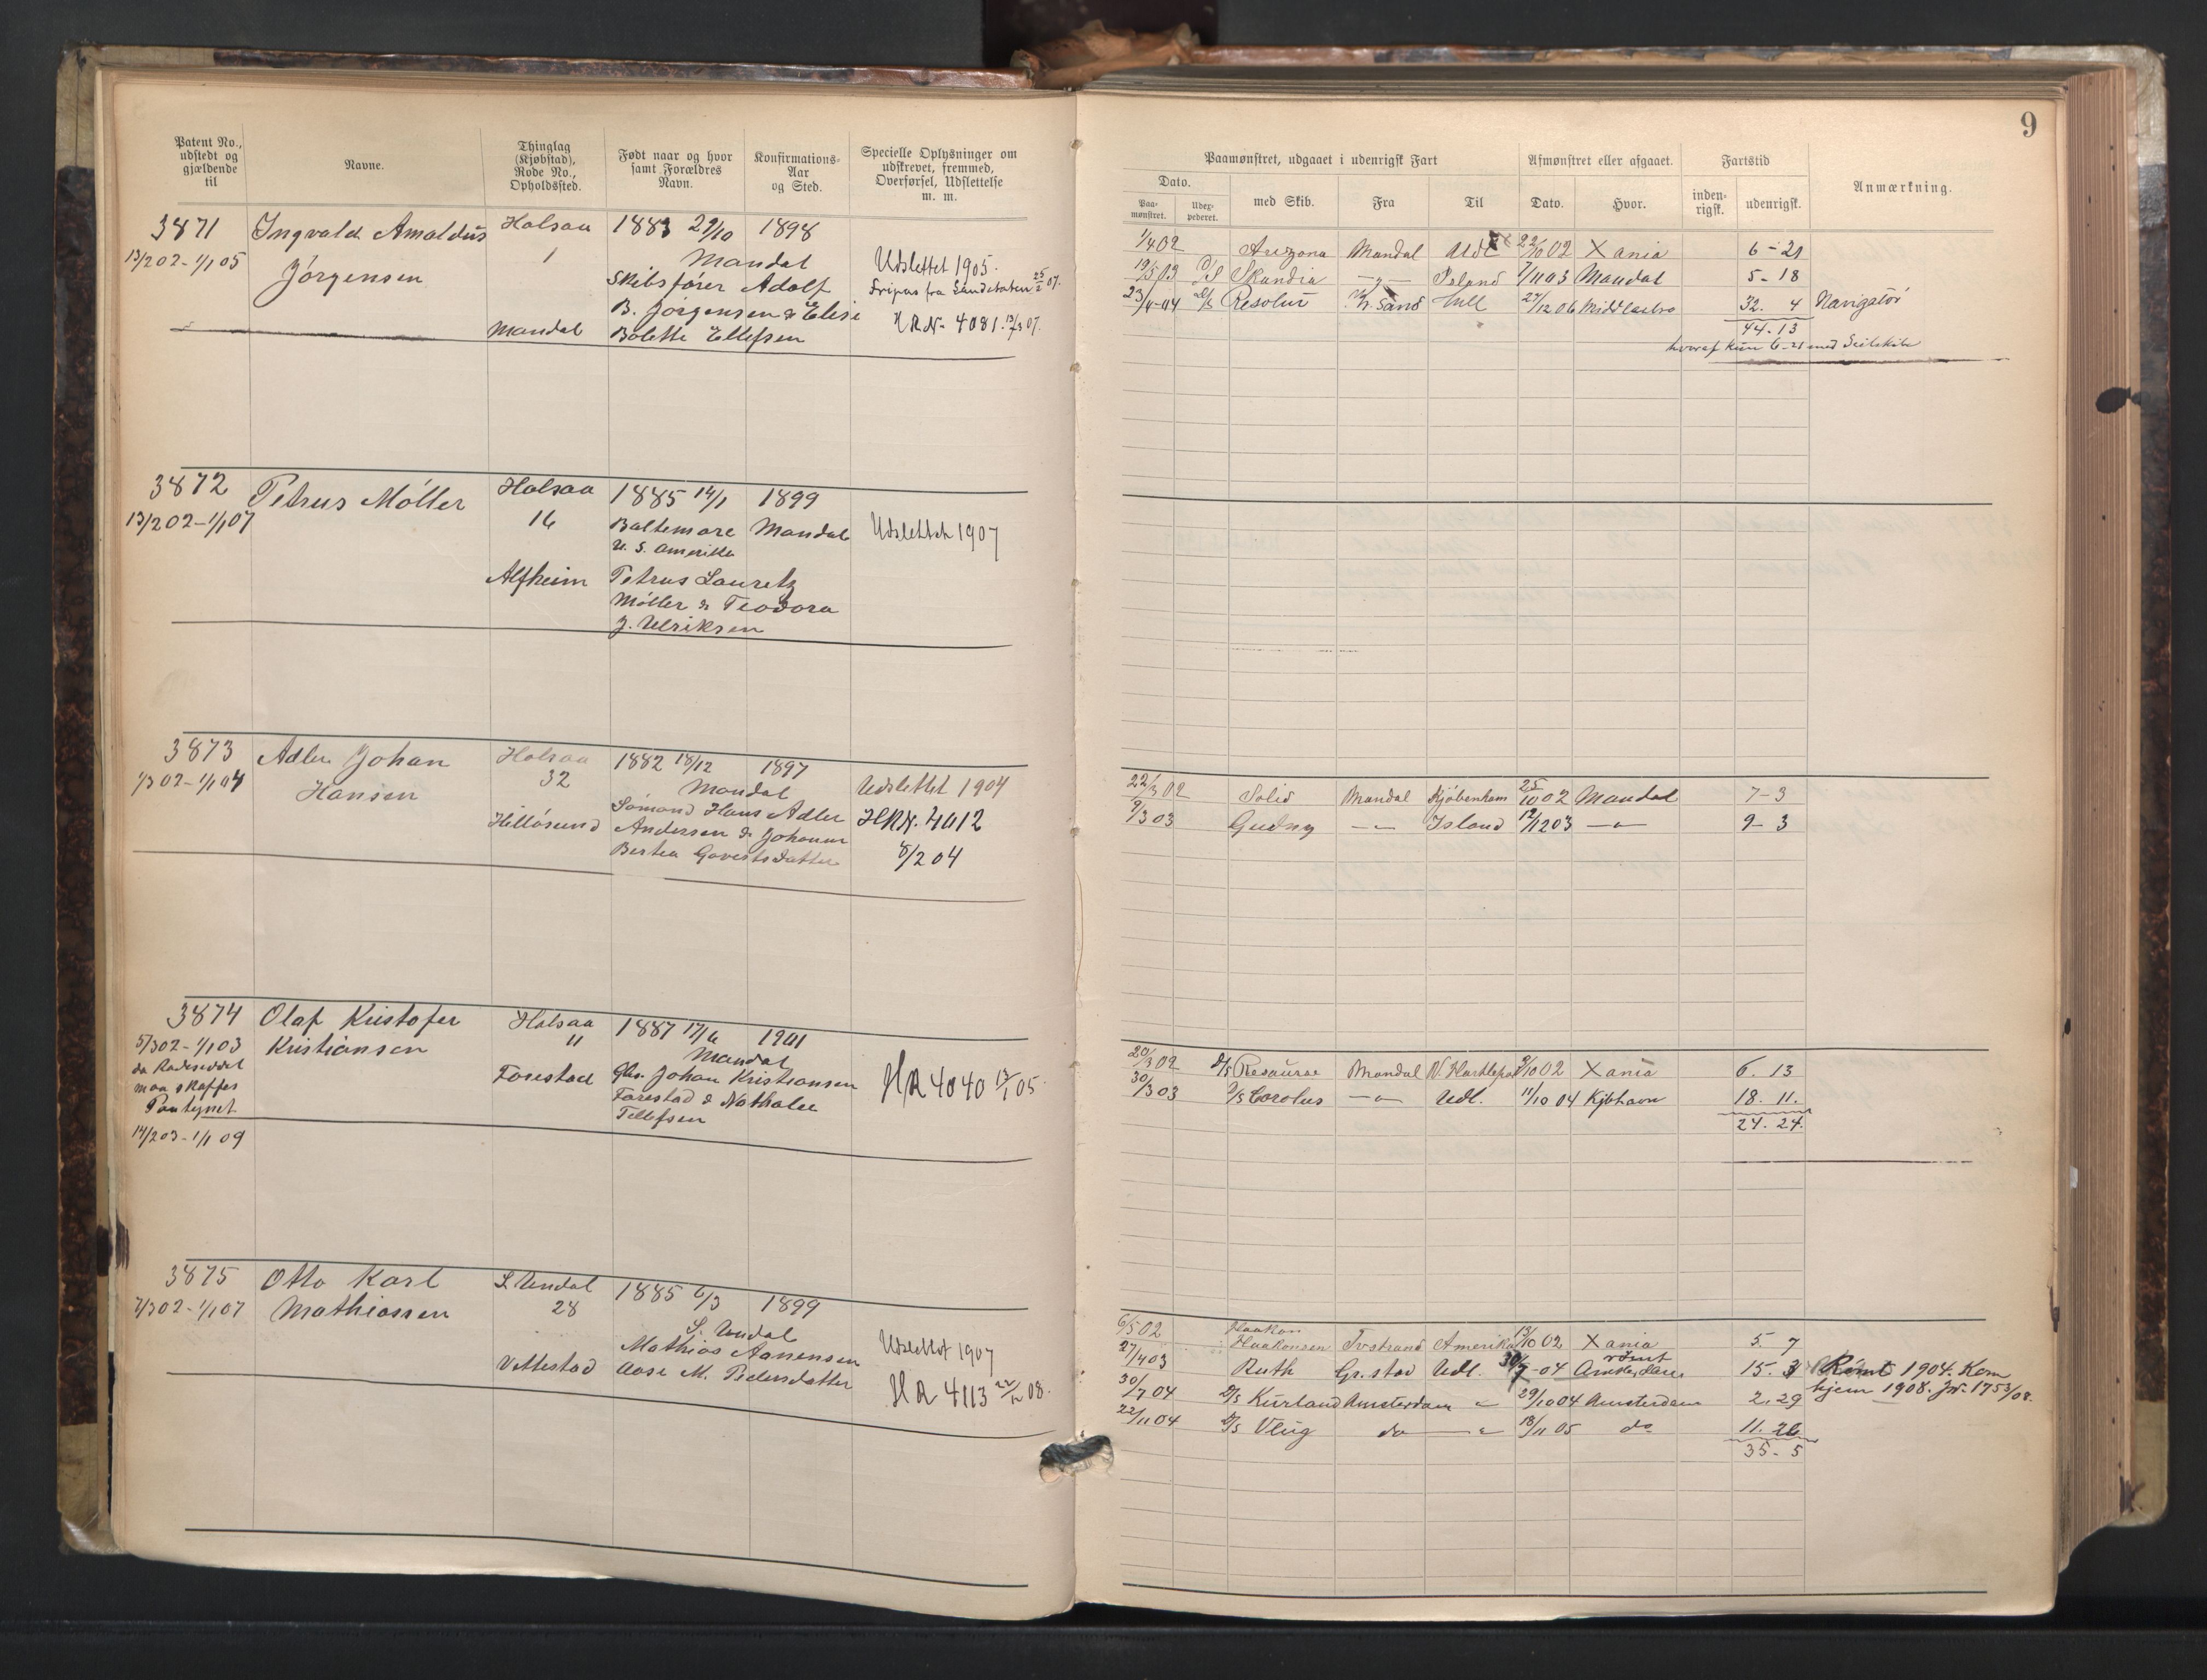 9
Patent No., udstedt og gjældende til
Navne.
Thinglag (Kjøbstad), Rode No., Opholdssted.
Født naar og hvor samt Forældres Navn.
Konfirmations-Aar og Sted.
Specielle Oplysninger om udskrevet, fremmed, Overførsel, Udslettelse m. m.
Paamønstret, udgaaet i udenrigsk Fart
Afmønstret eller afgaaet.
Fartstid
Anmærkning.
Dato.
Paa-mønstret.
Udex-pederet.
med Skib.
Fra
Til
Dato.
Hvor.
inden-rigsk.
udenrigsk.
3871 Ingvald Arnoldus Halsaa 1883 29/10 1898
13/2 02 - 1/1 05 Jørgensen 1 Mandal Udslettet 1905.
Skibsfører Adolf Fripas fra 25/2 07.
B. Jørgensen & Elise HRN. 4081. 13/3 07.
Mandal Bolette Ellefsen
1/4 02 Arizona Mandal Udl 22/10 02 Xania 6 - 21
19/5 03 D/S Skandia —„— Island 7/11 03 Mandal 5 - 18
23/4 - 04 D/S Resolut Kr. Sand Hull 27/12 06 Middlesbro 32. 4 Navigatør
44. 13
hvoraf kun 6-21 med Seilskib
3872 Petrus Møller Halsaa 1885 14/1 1899
13/2 02 - 1/1 07 16 Baltemore Mandal Udslettet 1907
U. S. Amerika
Alfheim Petrus Lauretz
Møller & Teodora
J. Ulriksen
3873 Adler Johan Halsaa 1882 18/12 1897
1/3 02 - 1/1 04 Hansen 32 Mandal Udslettet 1904
Sømand Hans Adler HRN. 4012
Hillesund Andersen & Johanne
Bertea Govertsdatter 8/2 04
22/3 02 Solid Mandal Kjøbenhavn 25/10 02 Mandal 7 - 3
9/3 03 Gudny —„— Island 12/12 03 —„— 9 - 3
3874 Olaf Kristofer Halsaa 1887 17/6 1901
5/3 02 - 1/1 03 Kristiansen 11 Mandal
da Rodeseddel Gbr. Johan Kristiansen HR 4040 13/1 05.
maa skaffes Farestad Farestad & Nathalie
Pantynet Tellefsen
14/2 03 - 1/1 09
20/3 02 D/S Resaurse Mandal W. Hartlepol 9/10 02 Xania 6. 13
30/3 03 D/S Corolus —„— Udl. 11/10 04 Kjbhavn 18. 11.
24. 24.
3875 Otto Karl S. Undal 1885 6/3 1899
7/3 02 - 1/1 07 Mathiassen 28 S. Undal
Mathias Aanensen Udslettet 1907
Vittestad Aase M. Pedersdatter HR 4113 22/12 08.
6/5 02 Haakon
Haakonsen Tvstrand Amerika 13/10 02 Xania 5. 7
27/4 03 Ruth Gr.stad Udl. 30/7 - 04 Amsterdam rømt 15. 3 Rømt 1904. Kom
30/7 04 D/S Kurland Amsterdam „ 29/10 04 Amsterdam 2. 29 hjem 1908. Jr. 1753/08.
22/11 04 D/S Vlug do —„— 18/11 05 do 11. 26
35. 5